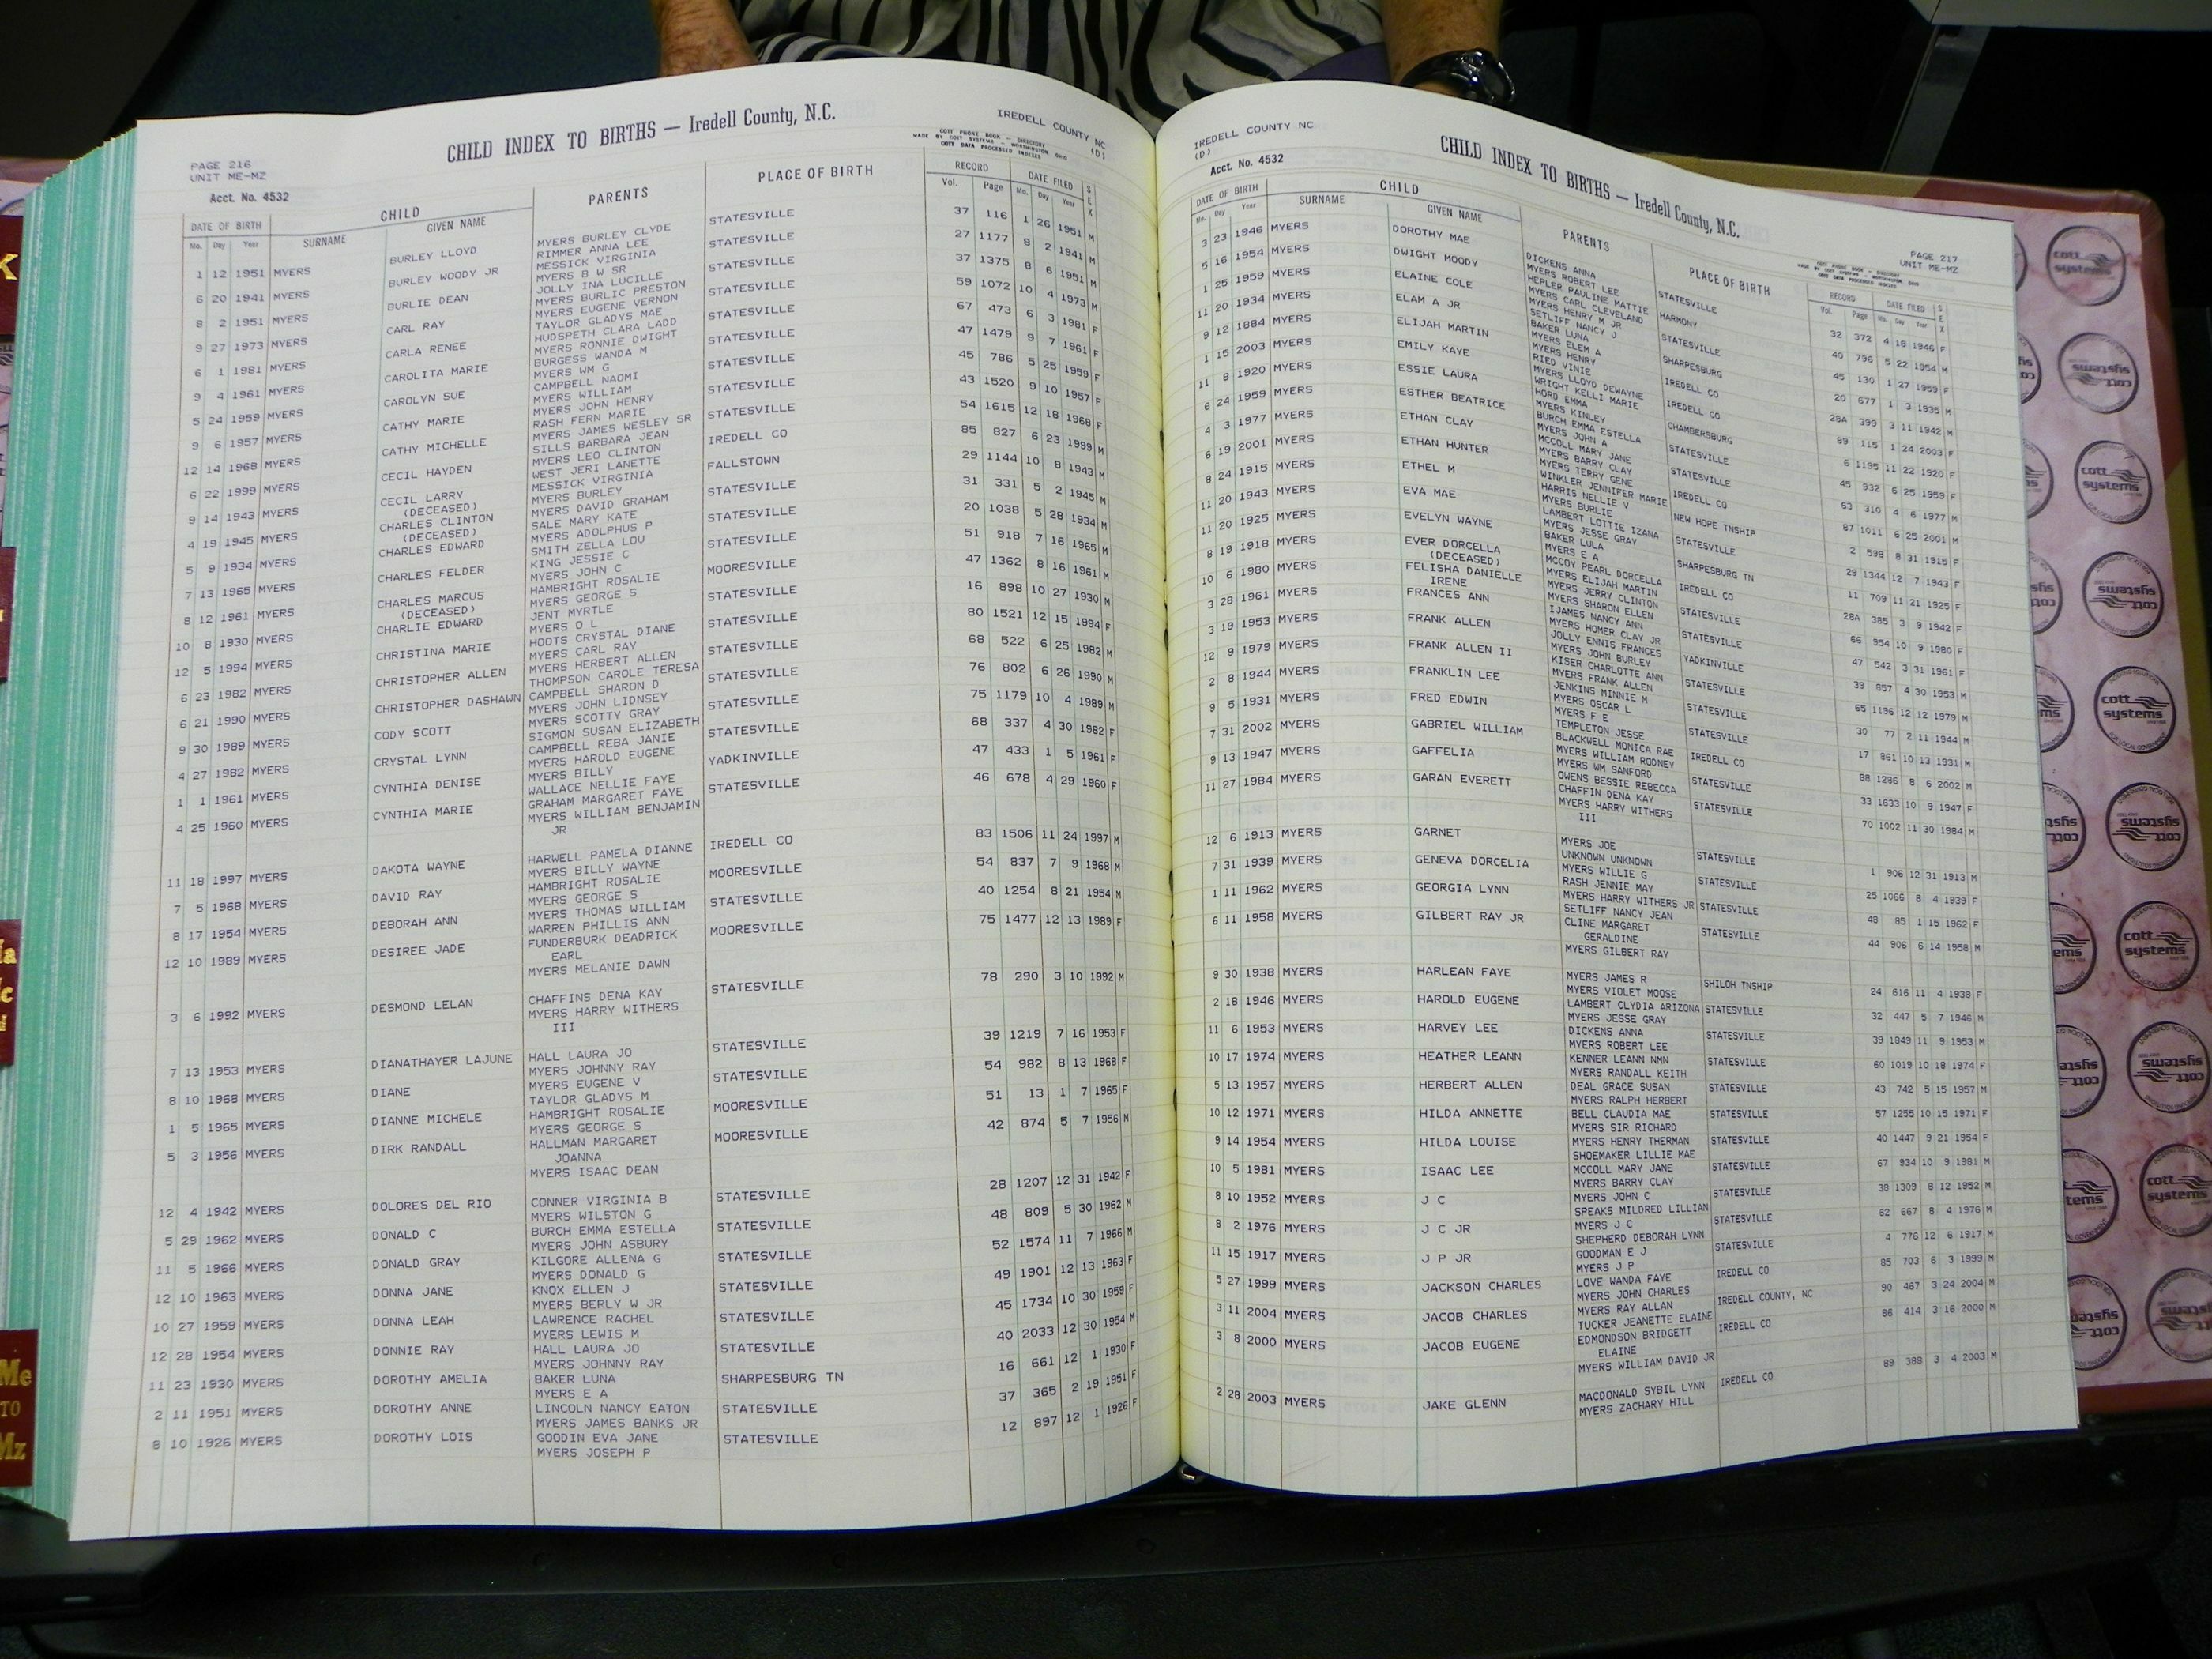 CHILD INDEX TO BIRTHS — Iredell County, N.C.
IREDELL COUNTY NC
(D)
COTT PHONE BOOK - DIRECTORY
MADE BY COTT SYSTEMS - WORTHINGTON OHIO
COTT DATA PROCESSED INDEXES
PAGE 216
UNIT ME-MZ
Acct. No. 4532
DATE OF BIRTH CHILD PARENTS PLACE OF BIRTH RECORD DATE FILED SEX
Mo. Day Year SURNAME GIVEN NAME Vol. Page Mo. Day Year
1 12 1951 MYERS BURLEY LLOYD MYERS BURLEY CLYDE STATESVILLE 37 116 1 26 1951 M
RIMMER ANNA LEE
6 20 1941 MYERS BURLEY WOODY JR MESSICK VIRGINIA STATESVILLE 27 1177 8 2 1941 M
MYERS B W SR
8 2 1951 MYERS BURLIE DEAN JOLLY INA LUCILLE STATESVILLE 37 1375 8 6 1951 M
MYERS BURLIC PRESTON
9 27 1973 MYERS CARL RAY MYERS EUGENE VERNON STATESVILLE 59 1072 10 4 1973 M
TAYLOR GLADYS MAE
6 1 1981 MYERS CARLA RENEE HUDSPETH CLARA LADD STATESVILLE 67 473 6 3 1981 F
MYERS RONNIE DWIGHT
9 4 1961 MYERS CAROLITA MARIE BURGESS WANDA M STATESVILLE 47 1479 9 7 1961 F
MYERS WM G
5 24 1959 MYERS CAROLYN SUE CAMPBELL NAOMI STATESVILLE 45 786 5 25 1959 F
MYERS WILLIAM
9 6 1957 MYERS CATHY MARIE MYERS JOHN HENRY STATESVILLE 43 1520 9 10 1957 F
RASH FERN MARIE
12 14 1968 MYERS CATHY MICHELLE MYERS JAMES WESLEY SR STATESVILLE 54 1615 12 18 1968 F
SILLS BARBARA JEAN
6 22 1999 MYERS CECIL HAYDEN MYERS LEO CLINTON IREDELL CO 85 827 6 23 1999 M
WEST JERI LANETTE
9 14 1943 MYERS CECIL LARRY MESSICK VIRGINIA FALLSTOWN 29 1144 10 8 1943 M
(DECEASED) MYERS BURLEY
4 19 1945 MYERS CHARLES CLINTON MYERS DAVID GRAHAM STATESVILLE 31 331 5 2 1945 M
(DECEASED) SALE MARY KATE
5 9 1934 MYERS CHARLES EDWARD MYERS ADOLPHUS P STATESVILLE 20 1038 5 28 1934 M
SMITH ZELLA LOU
7 13 1965 MYERS CHARLES FELDER KING JESSIE C STATESVILLE 51 918 7 16 1965 M
MYERS JOHN C
8 12 1961 MYERS CHARLES MARCUS HAMBRIGHT ROSALIE MOORESVILLE 47 1362 8 16 1961 M
(DECEASED) MYERS GEORGE S
10 8 1930 MYERS CHARLIE EDWARD JENT MYRTLE STATESVILLE 16 898 10 27 1930 M
MYERS O L
12 5 1994 MYERS CHRISTINA MARIE HOOTS CRYSTAL DIANE STATESVILLE 80 1521 12 15 1994 F
MYERS CARL RAY
6 23 1982 MYERS CHRISTOPHER ALLEN MYERS HERBERT ALLEN STATESVILLE 68 522 6 25 1982 M
THOMPSON CAROLE TERESA
6 21 1990 MYERS CHRISTOPHER DASHAWN CAMPBELL SHARON D STATESVILLE 76 802 6 26 1990 M
MYERS JOHN LIDNSEY
9 30 1989 MYERS CODY SCOTT MYERS SCOTTY GRAY STATESVILLE 75 1179 10 4 1989 M
SIGMON SUSAN ELIZABETH
4 27 1982 MYERS CRYSTAL LYNN CAMPBELL REBA JANIE STATESVILLE 68 337 4 30 1982 F
MYERS HAROLD EUGENE
1 1 1961 MYERS CYNTHIA DENISE MYERS BILLY YADKINVILLE 47 433 1 5 1961 F
WALLACE NELLIE FAYE
4 25 1960 MYERS CYNTHIA MARIE GRAHAM MARGARET FAYE STATESVILLE 46 678 4 29 1960 F
MYERS WILLIAM BENJAMIN
JR
11 18 1997 MYERS DAKOTA WAYNE HARWELL PAMELA DIANNE IREDELL CO 83 1506 11 24 1997 M
MYERS BILLY WAYNE
7 5 1968 MYERS DAVID RAY HAMBRIGHT ROSALIE MOORESVILLE 54 837 7 9 1968 M
MYERS GEORGE S
8 17 1954 MYERS DEBORAH ANN MYERS THOMAS WILLIAM STATESVILLE 40 1254 8 21 1954 M
WARREN PHILLIS ANN
12 10 1989 MYERS DESIREE JADE FUNDERBURK DEADRICK MOORESVILLE 75 1477 12 13 1989 F
EARL
MYERS MELANIE DAWN
3 6 1992 MYERS DESMOND LELAN CHAFFINS DENA KAY STATESVILLE 78 290 3 10 1992 M
MYERS HARRY WITHERS
III
7 13 1953 MYERS DIANATHAYER LAJUNE HALL LAURA JO STATESVILLE 39 1219 7 16 1953 F
MYERS JOHNNY RAY
8 10 1968 MYERS DIANE MYERS EUGENE V STATESVILLE 54 982 8 13 1968 F
TAYLOR GLADYS M
1 5 1965 MYERS DIANNE MICHELE HAMBRIGHT ROSALIE MOORESVILLE 51 13 1 7 1965 F
MYERS GEORGE S
5 3 1956 MYERS DIRK RANDALL HALLMAN MARGARET MOORESVILLE 42 874 5 7 1956 M
JOANNA
MYERS ISAAC DEAN
12 4 1942 MYERS DOLORES DEL RIO CONNER VIRGINIA B STATESVILLE 28 1207 12 31 1942 F
MYERS WILSTON G
5 29 1962 MYERS DONALD C BURCH EMMA ESTELLA STATESVILLE 48 809 5 30 1962 M
MYERS JOHN ASBURY
11 5 1966 MYERS DONALD GRAY KILGORE ALLENA G STATESVILLE 52 1574 11 7 1966 M
MYERS DONALD G
12 10 1963 MYERS DONNA JANE KNOX ELLEN J STATESVILLE 49 1901 12 13 1963 F
MYERS BERLY W JR
10 27 1959 MYERS DONNA LEAH LAWRENCE RACHEL STATESVILLE 45 1734 10 30 1959 F
MYERS LEWIS M
12 28 1954 MYERS DONNIE RAY HALL LAURA JO STATESVILLE 40 2033 12 30 1954 M
MYERS JOHNNY RAY
11 23 1930 MYERS DOROTHY AMELIA BAKER LUNA SHARPESBURG TN 16 661 12 1 1930 F
MYERS E A
2 11 1951 MYERS DOROTHY ANNE LINCOLN NANCY EATON STATESVILLE 37 365 2 19 1951 F
MYERS JAMES BANKS JR
8 10 1926 MYERS DOROTHY LOIS GOODIN EVA JANE STATESVILLE 12 897 12 1 1926 F
MYERS JOSEPH P
IREDELL COUNTY NC
(D)
CHILD INDEX TO BIRTHS — Iredell County, N.C.
Acct. No. 4532
PAGE 217
UNIT ME-MZ
COTT PHONE BOOK - DIRECTORY
MADE BY COTT SYSTEMS - WORTHINGTON OHIO
COTT DATA PROCESSED INDEXES
DATE OF BIRTH CHILD PARENTS PLACE OF BIRTH RECORD DATE FILED SEX
Mo. Day Year SURNAME GIVEN NAME Vol. Page Mo. Day Year
3 23 1946 MYERS DOROTHY MAE DICKENS ANNA STATESVILLE 32 372 4 18 1946 F
MYERS ROBERT LEE
5 16 1954 MYERS DWIGHT MOODY HEPLER PAULINE MATTIE HARMONY 40 796 5 22 1954 M
MYERS CARL CLEVELAND
1 25 1959 MYERS ELAINE COLE MYERS HENRY M JR STATESVILLE 45 130 1 27 1959 F
SETLIFF NANCY J
11 20 1934 MYERS ELAM A JR BAKER LUNA SHARPESBURG 20 677 1 3 1935 M
MYERS ELEM A
9 12 1884 MYERS ELIJAH MARTIN MYERS HENRY IREDELL CO 28A 399 3 11 1942 M
RIED VINIE
1 15 2003 MYERS EMILY KAYE MYERS LLOYD DEWAYNE IREDELL CO 89 115 1 24 2003 F
WRIGHT KELLI MARIE
11 8 1920 MYERS ESSIE LAURA HORD EMMA CHAMBERSBURG 6 1195 11 22 1920 F
MYERS KINLEY
6 24 1959 MYERS ESTHER BEATRICE BURCH EMMA ESTELLA STATESVILLE 45 932 6 25 1959 F
MYERS JOHN A
4 3 1977 MYERS ETHAN CLAY MCCOLL MARY JANE STATESVILLE 63 310 4 6 1977 M
MYERS BARRY CLAY
6 19 2001 MYERS ETHAN HUNTER MYERS TERRY GENE IREDELL CO 87 1011 6 25 2001 M
WINKLER JENNIFER MARIE
8 24 1915 MYERS ETHEL M HARRIS NELLIE V NEW HOPE TNSHIP 2 598 8 31 1915 F
MYERS BURLIE
11 20 1943 MYERS EVA MAE LAMBERT LOTTIE IZANA STATESVILLE 29 1344 12 7 1943 F
MYERS JESSE GRAY
11 20 1925 MYERS EVELYN WAYNE BAKER LULA SHARPESBURG TN 11 709 11 21 1925 F
MYERS E A
8 19 1918 MYERS EVER DORCELLA MCCOY PEARL DORCELLA IREDELL CO 28A 385 3 9 1942 F
(DECEASED) MYERS ELIJAH MARTIN
10 6 1980 MYERS FELISHA DANIELLE MYERS JERRY CLINTON STATESVILLE 66 954 10 9 1980 F
IRENE MYERS SHARON ELLEN
3 28 1961 MYERS FRANCES ANN IJAMES NANCY ANN STATESVILLE 47 542 3 31 1961 F
MYERS HOMER CLAY JR
3 19 1953 MYERS FRANK ALLEN JOLLY ENNIS FRANCES YADKINVILLE 39 857 4 30 1953 M
MYERS JOHN BURLEY
12 9 1979 MYERS FRANK ALLEN II KISER CHARLOTTE ANN STATESVILLE 65 1196 12 12 1979 M
MYERS FRANK ALLEN
2 8 1944 MYERS FRANKLIN LEE JENKINS MINNIE M STATESVILLE 30 77 2 11 1944 M
MYERS OSCAR L
9 5 1931 MYERS FRED EDWIN MYERS F E STATESVILLE 17 861 10 13 1931 M
TEMPLETON JESSE
7 31 2002 MYERS GABRIEL WILLIAM BLACKWELL MONICA RAE IREDELL CO 88 1286 8 6 2002 M
MYERS WILLIAM RODNEY
9 13 1947 MYERS GAFFELIA MYERS WM SANFORD STATESVILLE 33 1633 10 9 1947 F
OWENS BESSIE REBECCA
11 27 1984 MYERS GARAN EVERETT CHAFFIN DENA KAY STATESVILLE 70 1002 11 30 1984 M
MYERS HARRY WITHERS
III
12 6 1913 MYERS GARNET MYERS JOE STATESVILLE 1 906 12 31 1913 M
UNKNOWN UNKNOWN
7 31 1939 MYERS GENEVA DORCELIA MYERS WILLIE G STATESVILLE 25 1066 8 4 1939 F
RASH JENNIE MAY
1 11 1962 MYERS GEORGIA LYNN MYERS HARRY WITHERS JR STATESVILLE 48 85 1 15 1962 F
SETLIFF NANCY JEAN
6 11 1958 MYERS GILBERT RAY JR CLINE MARGARET STATESVILLE 44 906 6 14 1958 M
GERALDINE
MYERS GILBERT RAY
9 30 1938 MYERS HARLEAN FAYE MYERS JAMES R SHILOH TNSHIP 24 616 11 4 1938 F
MYERS VIOLET MOOSE
2 18 1946 MYERS HAROLD EUGENE LAMBERT CLYDIA ARIZONA STATESVILLE 32 447 5 7 1946 M
MYERS JESSE GRAY
11 6 1953 MYERS HARVEY LEE DICKENS ANNA STATESVILLE 39 1849 11 9 1953 M
MYERS ROBERT LEE
10 17 1974 MYERS HEATHER LEANN KENNER LEANN NMN STATESVILLE 60 1019 10 18 1974 F
MYERS RANDALL KEITH
5 13 1957 MYERS HERBERT ALLEN DEAL GRACE SUSAN STATESVILLE 43 742 5 15 1957 M
MYERS RALPH HERBERT
10 12 1971 MYERS HILDA ANNETTE BELL CLAUDIA MAE STATESVILLE 57 1255 10 15 1971 F
MYERS SIR RICHARD
9 14 1954 MYERS HILDA LOUISE MYERS HENRY THERMAN STATESVILLE 40 1447 9 21 1954 F
SHOEMAKER LILLIE MAE
10 5 1981 MYERS ISAAC LEE MCCOLL MARY JANE STATESVILLE 67 934 10 9 1981 M
MYERS BARRY CLAY
8 10 1952 MYERS J C MYERS JOHN C STATESVILLE 38 1309 8 12 1952 M
SPEAKS MILDRED LILLIAN
8 2 1976 MYERS J C JR MYERS J C STATESVILLE 62 667 8 4 1976 M
SHEPHERD DEBORAH LYNN
11 15 1917 MYERS J P JR GOODMAN E J STATESVILLE 4 776 12 6 1917 M
MYERS J P
5 27 1999 MYERS JACKSON CHARLES LOVE WANDA FAYE IREDELL CO 85 703 6 3 1999 M
MYERS JOHN CHARLES
3 11 2004 MYERS JACOB CHARLES MYERS RAY ALLAN IREDELL COUNTY, NC 90 467 3 24 2004 M
TUCKER JEANETTE ELAINE
3 8 2000 MYERS JACOB EUGENE EDMONDSON BRIDGETT IREDELL CO 86 414 3 16 2000 M
ELAINE
MYERS WILLIAM DAVID JR
2 28 2003 MYERS JAKE GLENN MACDONALD SYBIL LYNN IREDELL CO 89 388 3 4 2003 M
MYERS ZACHARY HILL
cott systems
Me
TO
Mz